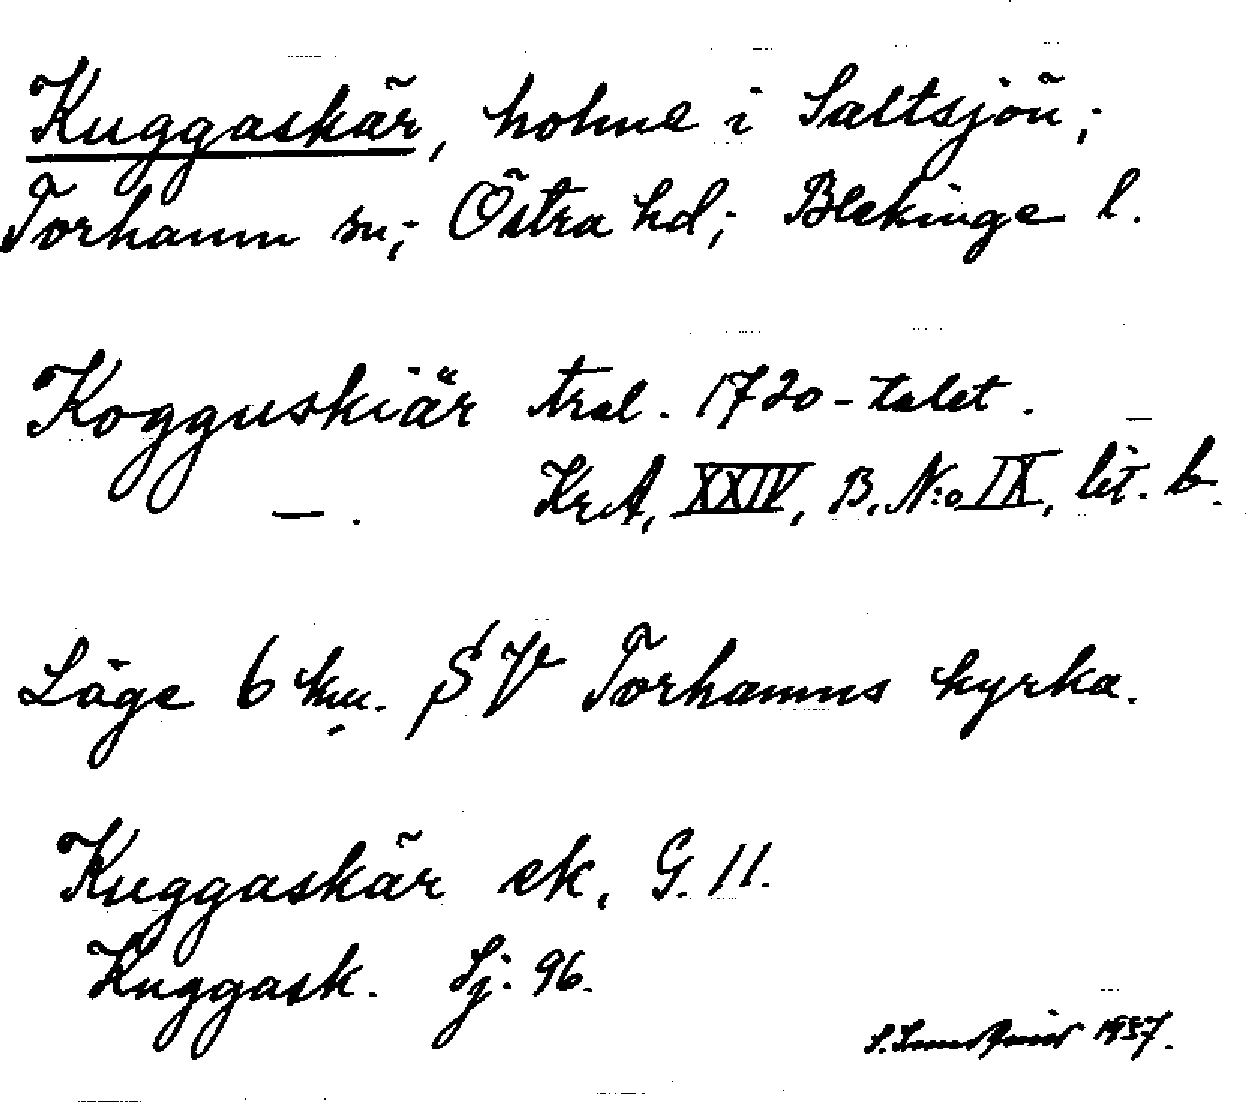 Kuggaskär, holme i Saltsjön;
Torhamn sn; Östra hd; Blekinge l.
Kogguskiär tral. 1720-talet.
—. KrA, XXIV, B. N:o IX, lit. b.
Läge 6 km. SV Torhamns kyrka.
Kuggaskär ek, G. 11.
Kuggask. Sj. 96.
1937.